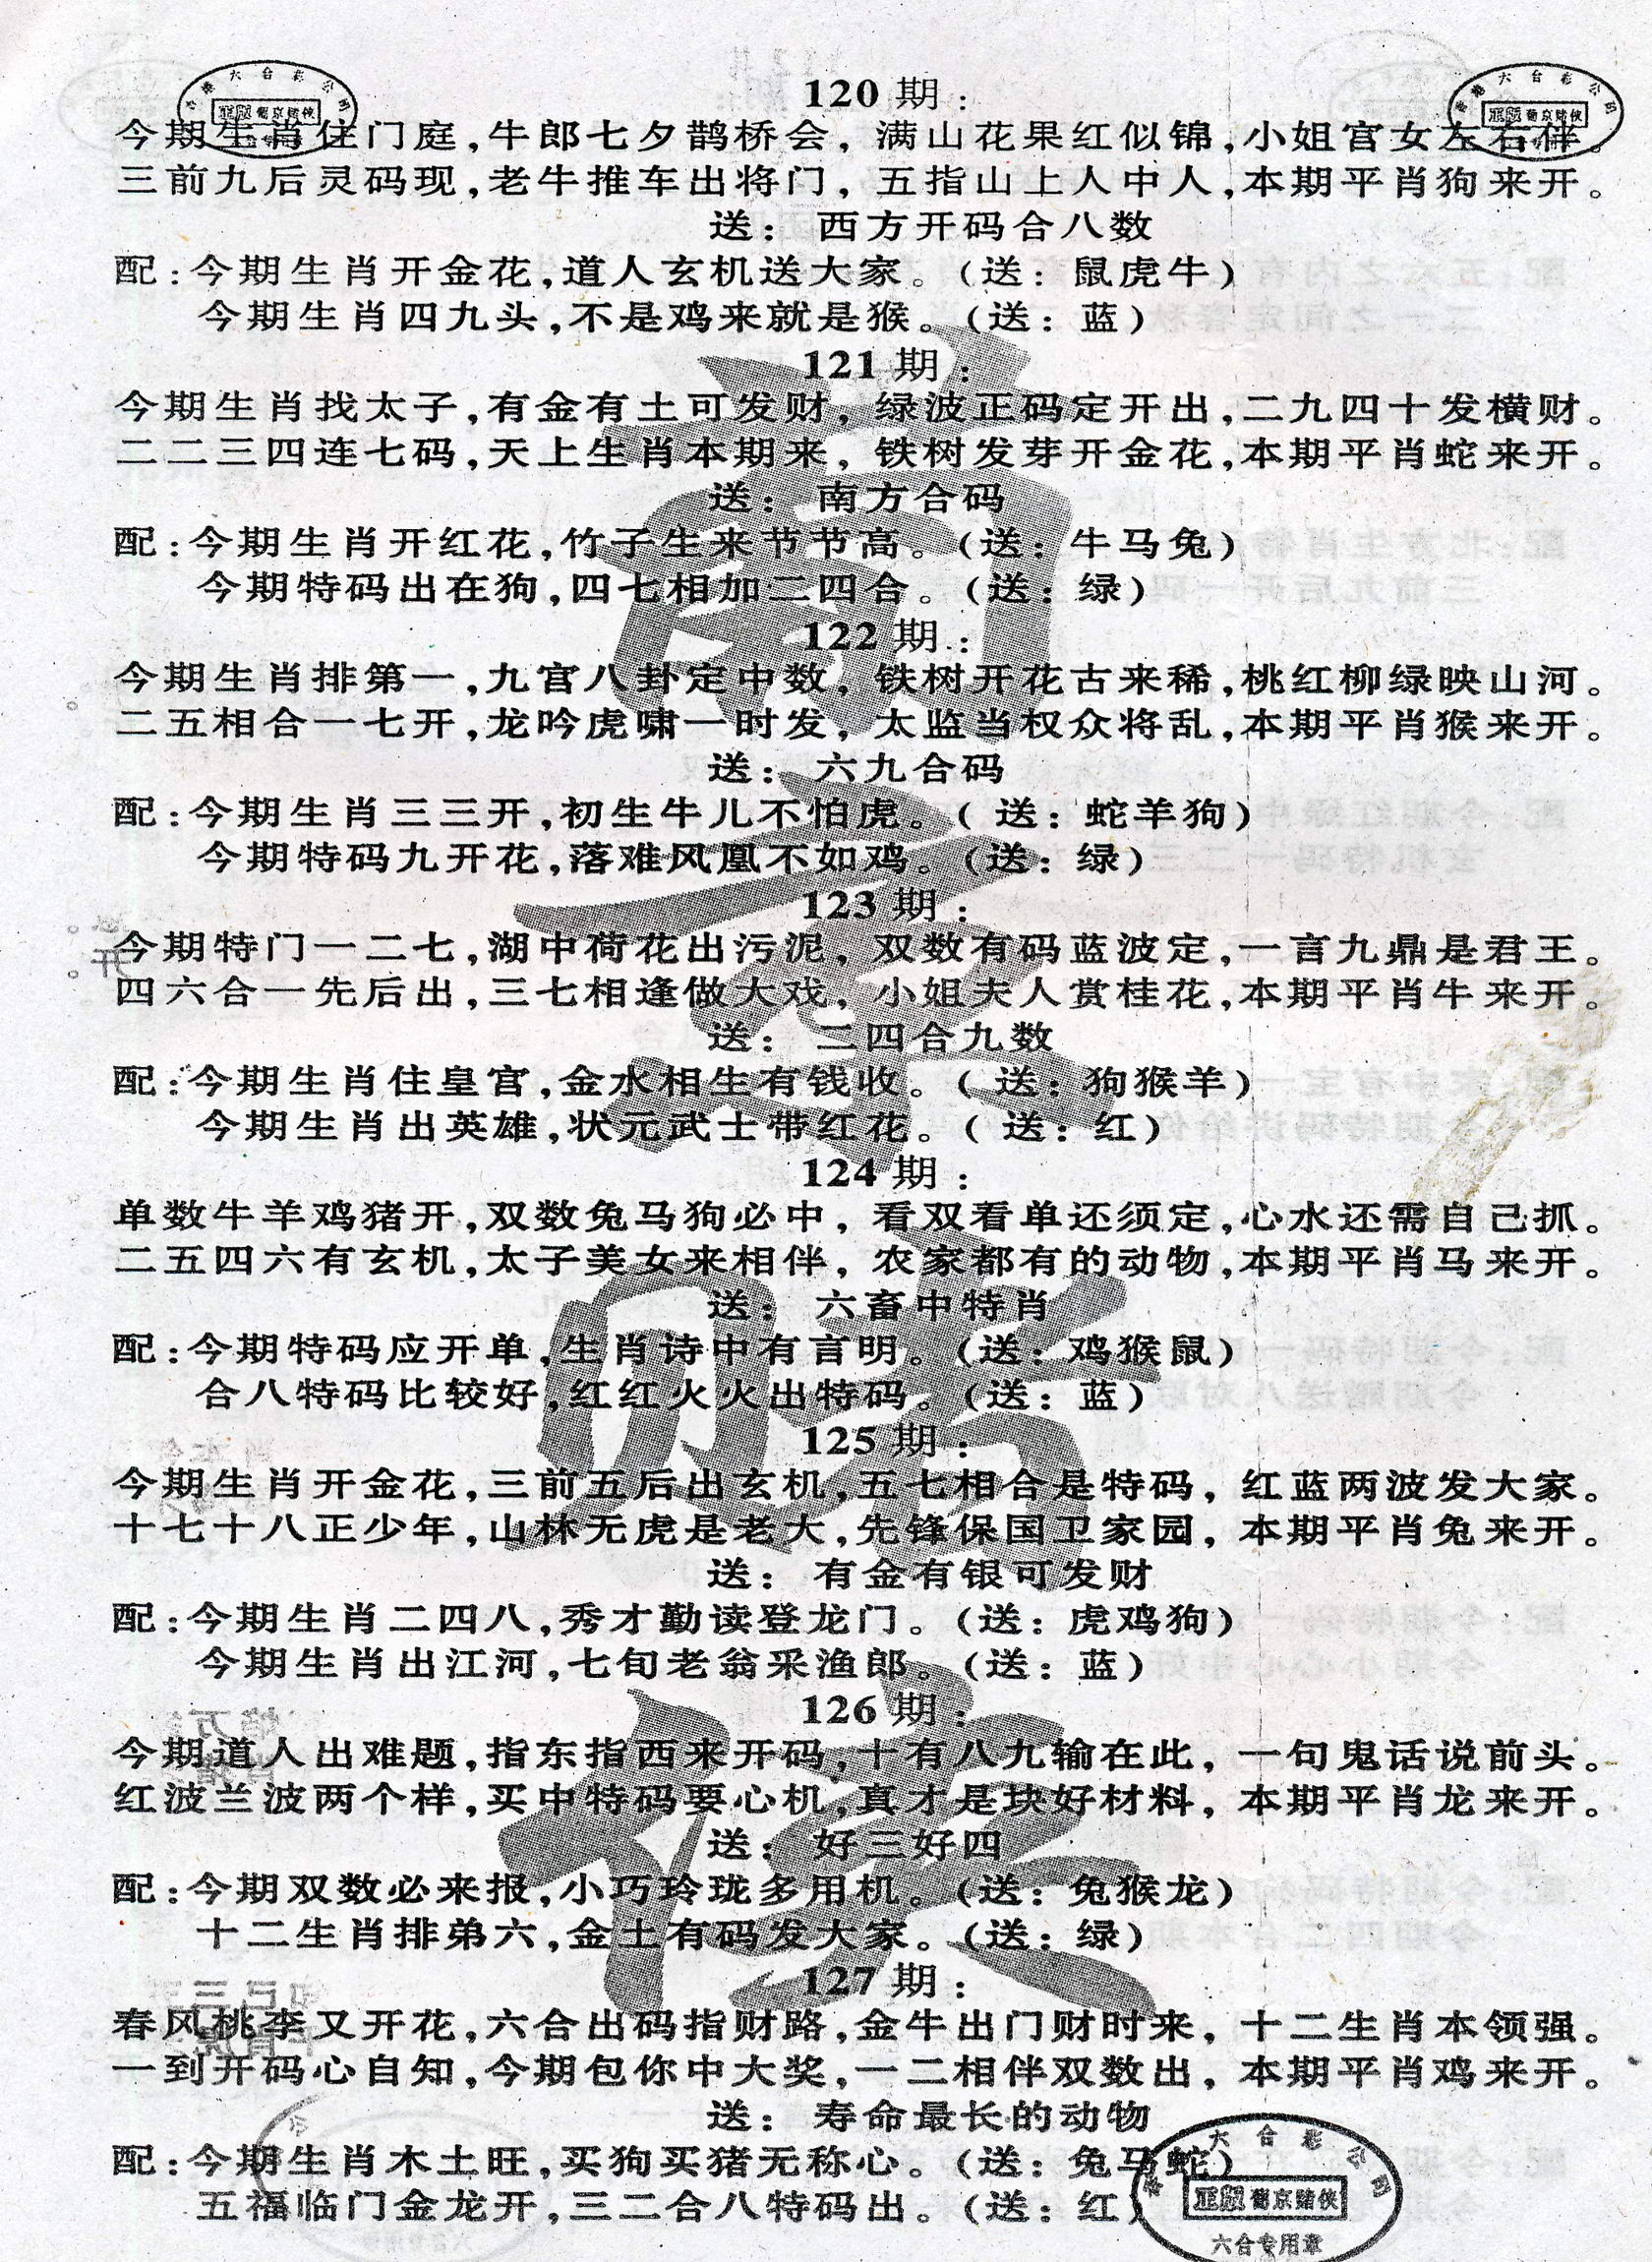 120期:
今期生肖住门庭,牛郎七夕鹊桥会, 满山花果红似锦,小姐官女左右伴。
三前九后灵码现,老牛推车出将门, 五指山上人中人,本期平肖狗来开。
送: 西方开码合八数
配:今期生肖开金花,道人玄机送大家。(送: 鼠虎牛)
今期生肖四九头,不是鸡来就是猴。(送: 蓝)
121期:
今期生肖找太子,有金有土可发财, 绿波正码定开出,二九四十发横财。
二二三四连七码,天上生肖本期来, 铁树发芽开金花,本期平肖蛇来开。
送: 南方合码
配:今期生肖开红花,竹子生来节节高。(送: 牛马兔)
今期特码出在狗,四七相加二四合。(送: 绿)
122期:
今期生肖排第一,九宫八卦定中数, 铁树开花古来稀,桃红柳绿映山河。
二五相合一七开,龙吟虎啸一时发, 太监当权众将乱,本期平肖猴来开。
送: 六九合码
配:今期生肖三三开,初生牛儿不怕虎。( 送: 蛇羊狗)
今期特码九开花,落难凤凰不如鸡。(送: 绿)
123期:
今期特门一二七,湖中荷花出污泥, 双数有码蓝波定,一言九鼎是君王。
四六合一先后出,三七相逢做大戏, 小姐夫人赏桂花,本期平肖牛来开。
送: 二四合九数
配:今期生肖住皇宫,金水相生有钱收。( 送: 狗猴羊)
今期生肖出英雄,状元武士带红花。( 送: 红)
124期:
单数牛羊鸡猪开,双数兔马狗必中, 看双看单还须定,心水还需自己抓。
二五四六有玄机,太子美女来相伴, 农家都有的动物,本期平肖马来开。
送: 六畜中特肖
配:今期特码应开单,生肖诗中有言明。(送: 鸡猴鼠)
合八特码比较好,红红火火出特码。(送: 蓝)
125期:
今期生肖开金花,三前五后出玄机,五七相合是特码, 红蓝两波发大家。
十七十八正少年,山林无虎是老大,先锋保国卫家园, 本期平肖兔来开。
送: 有金有银可发财
配:今期生肖二四八,秀才勤读登龙门。(送: 虎鸡狗)
今期生肖出江河,七旬老翁采渔郎。(送: 蓝)
126期:
今期道人出难题,指东指西来开码,十有八九输在此, 一句鬼话说前头。
红波兰波两个样,买中特码要心机,真才是块好材料, 本期平肖龙来开。
送: 好三好四
配:今期双数必来报,小巧玲珑多用机。(送: 兔猴龙)
十二生肖排弟六,金土有码发大家。(送: 绿)
127期:
春风桃李又开花,六合出码指财路,金牛出门财时来, 十二生肖本领强。
一到开码心自知,今期包你中大奖,一二相伴双数出, 本期平肖鸡来开。
送: 寿命最长的动物
配:今期生肖木土旺,买狗买猪无称心。(送: 兔马蛇)
五福临门金龙开,三二合八特码出。(送: 红)
正版葡京赌侠
六合专用章